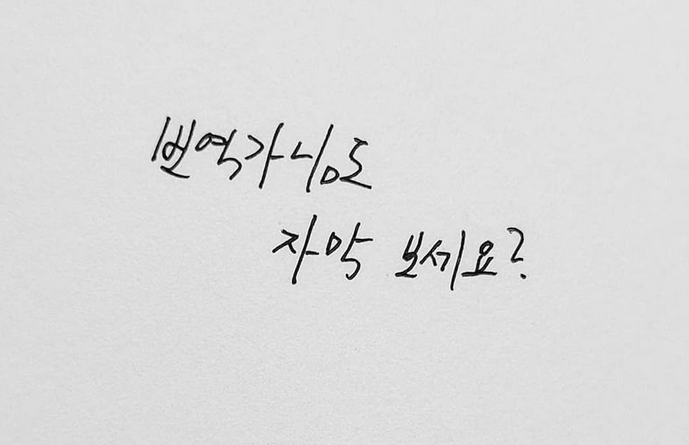 번역가님도
자막 보세요?